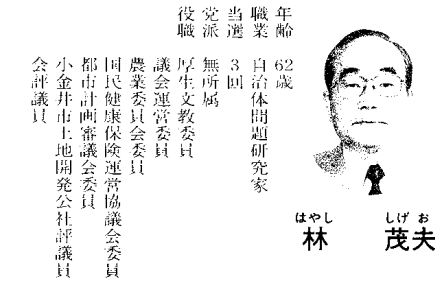 年齢 62歳
職業 自治体問題研究家
当選 3回
党派 無所属
役職 厚生文教委員
議会運営委員
農業委員会委員
国民健康保険運営協議会委員
都市計画審議会委員
小金井市土地開発公社評議員
会評議員
はやし しげお
林 茂夫